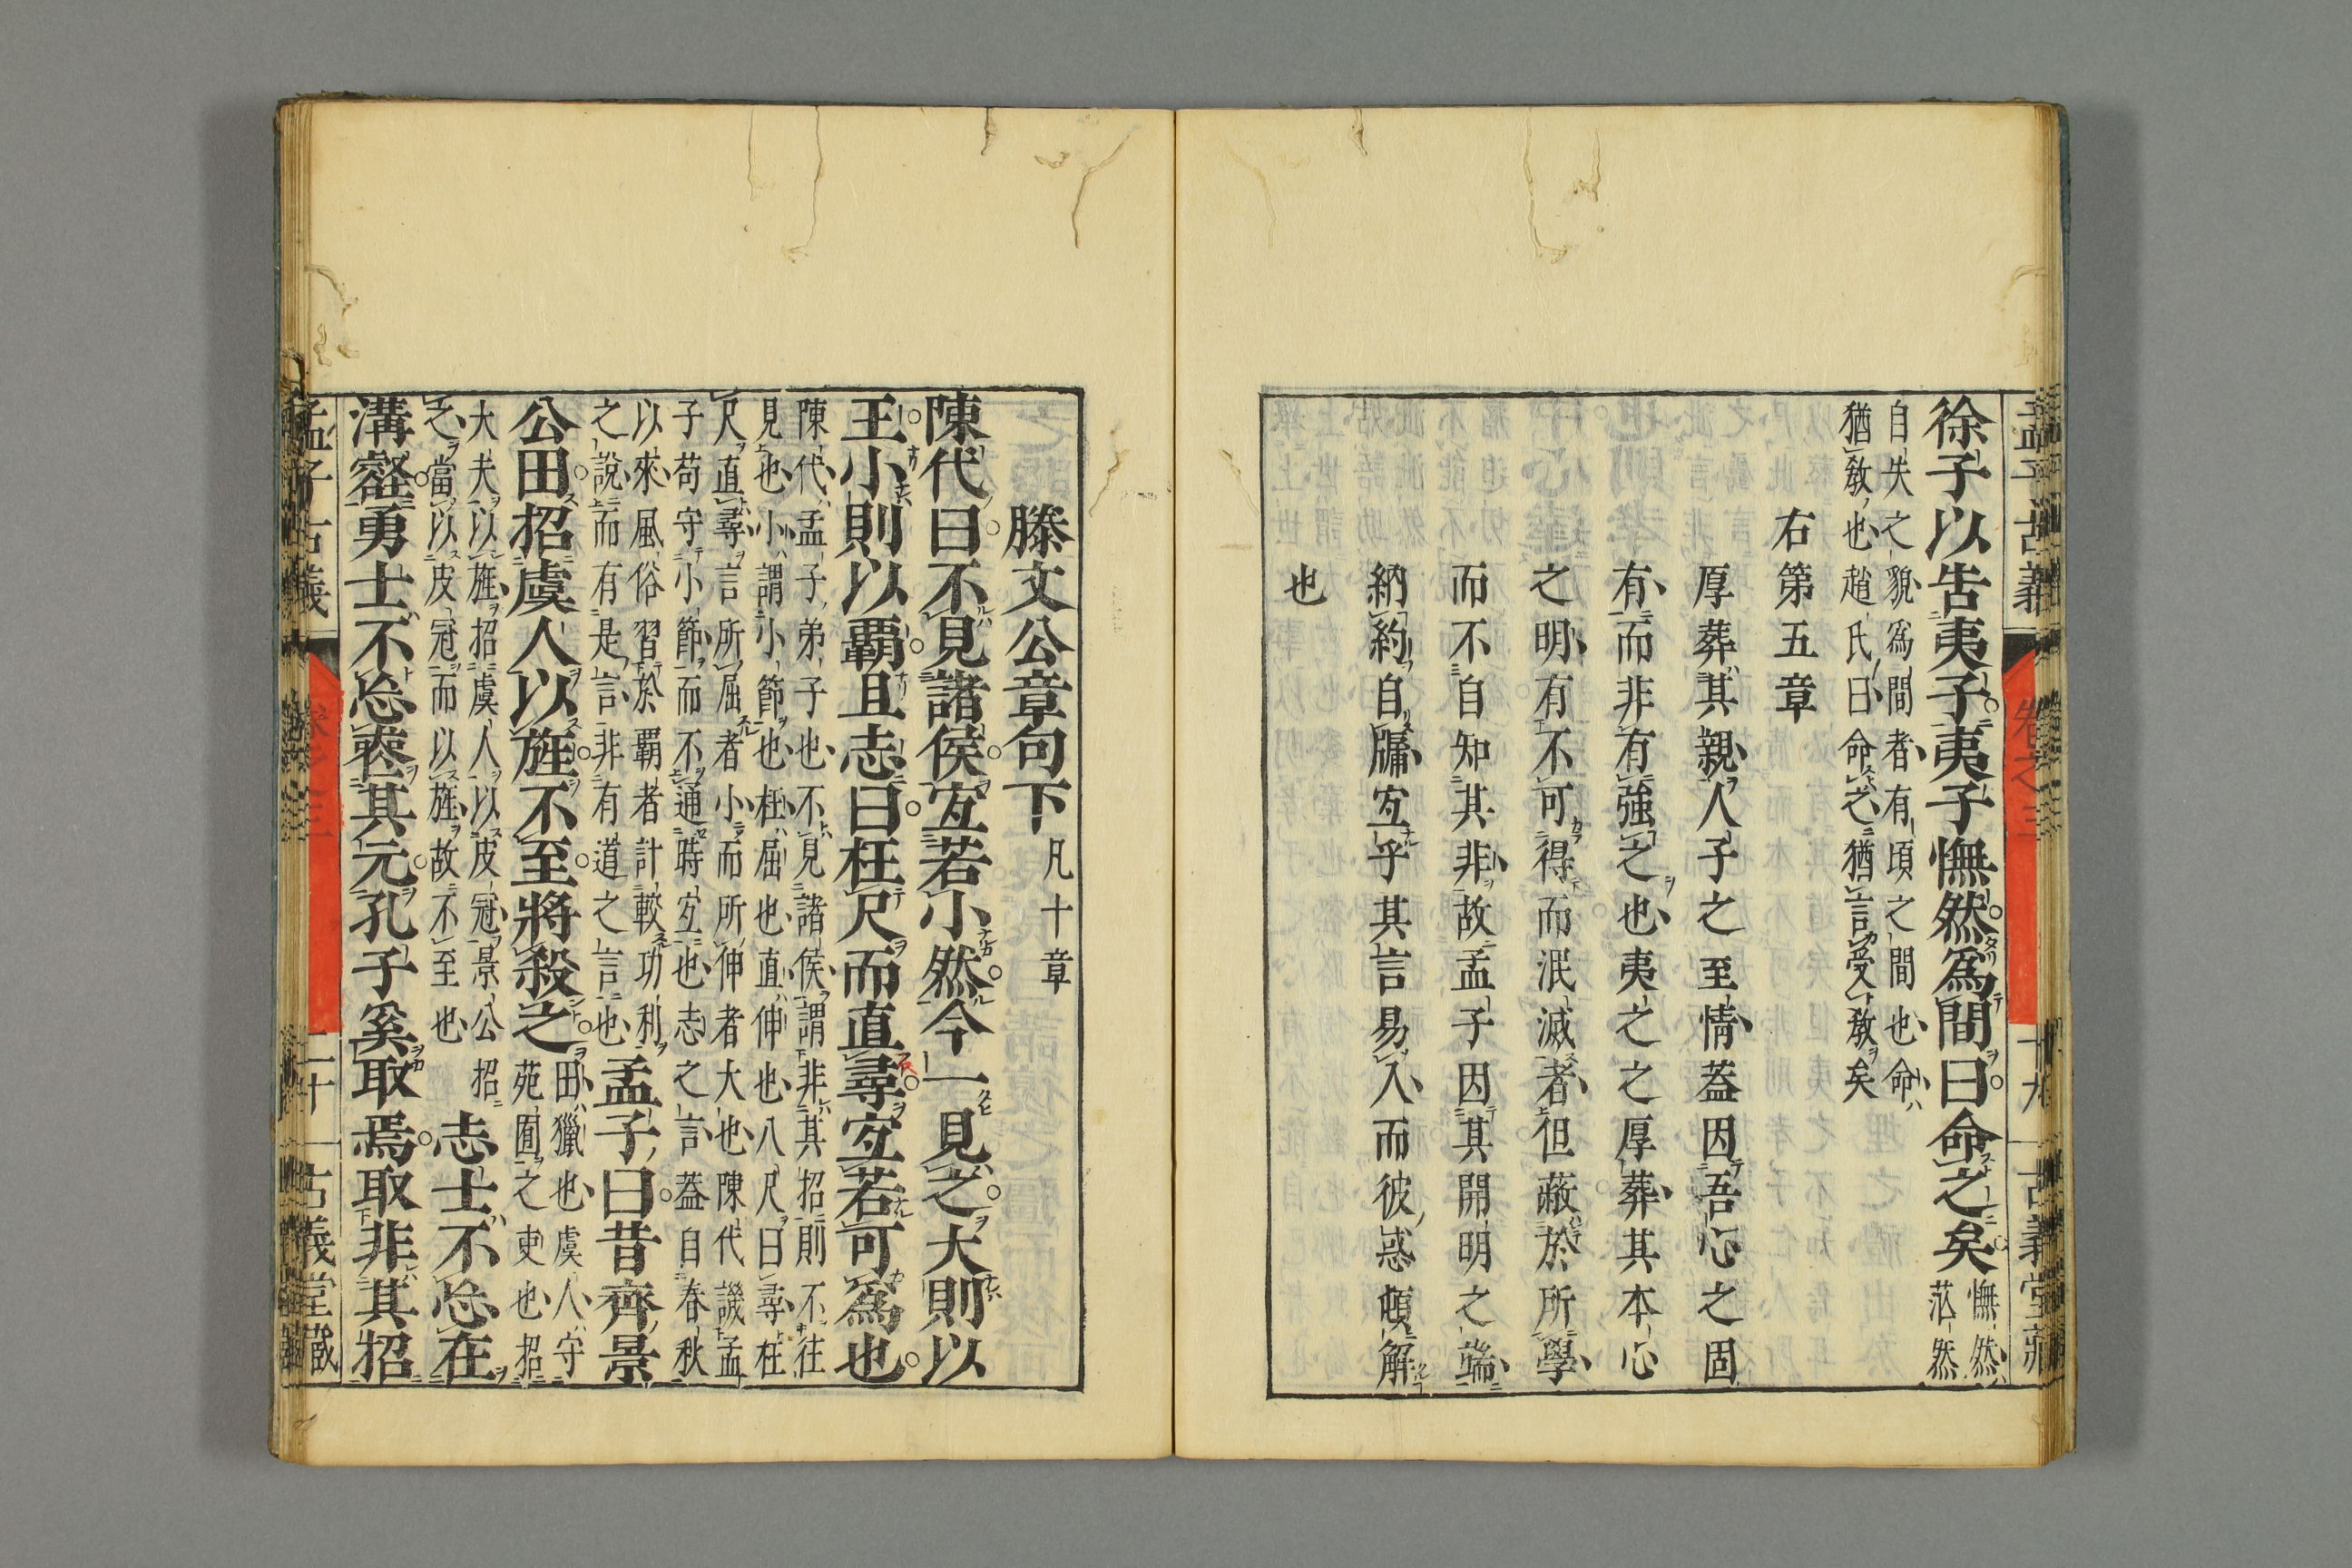 徐子以告夷子夷子憮然爲間曰命之矣憮然茫然
自失之貌爲間者有頃之間也命
猶敎也趙氏曰命之猶言受敎矣
右第五章
厚葬其親人子之至情蓋因吾心之固
有而非有強之也夷之之厚葬其本心
之明有不可得而泯滅者但蔽於所學
而不自知其非故孟子因其開明之端
納約自牖宐乎其言易入而彼惑頓解
也
孟子古義
卷之三
十九
古義堂藏
滕文公章句下凡十章
陳代曰不見諸侯宐若小然今一見之大則以
王小則以霸且志曰枉尺而直尋宐若可爲也
陳代孟子弟子也不見諸侯謂非其招則不往
見也小謂小節也枉屈也直伸也八尺曰尋枉
尺直尋言所屈者小而所伸者大也陳代譏孟
子苟守小節而不通時宐也志之言蓋自春秋
以來風俗習於覇者計較功利
之說而有是言非有道之言也
孟子曰昔齊景
公田招虞人以旌不至將殺之田獵也虞人守
苑囿之吏也招
大夫以旌招虞人以皮冠景公招
之當以皮冠而以旌故不至也
志士不忘在
溝壑勇士不忘喪其元孔子奚取焉取非其招
孟子古義
卷之三
二十
古義堂藏